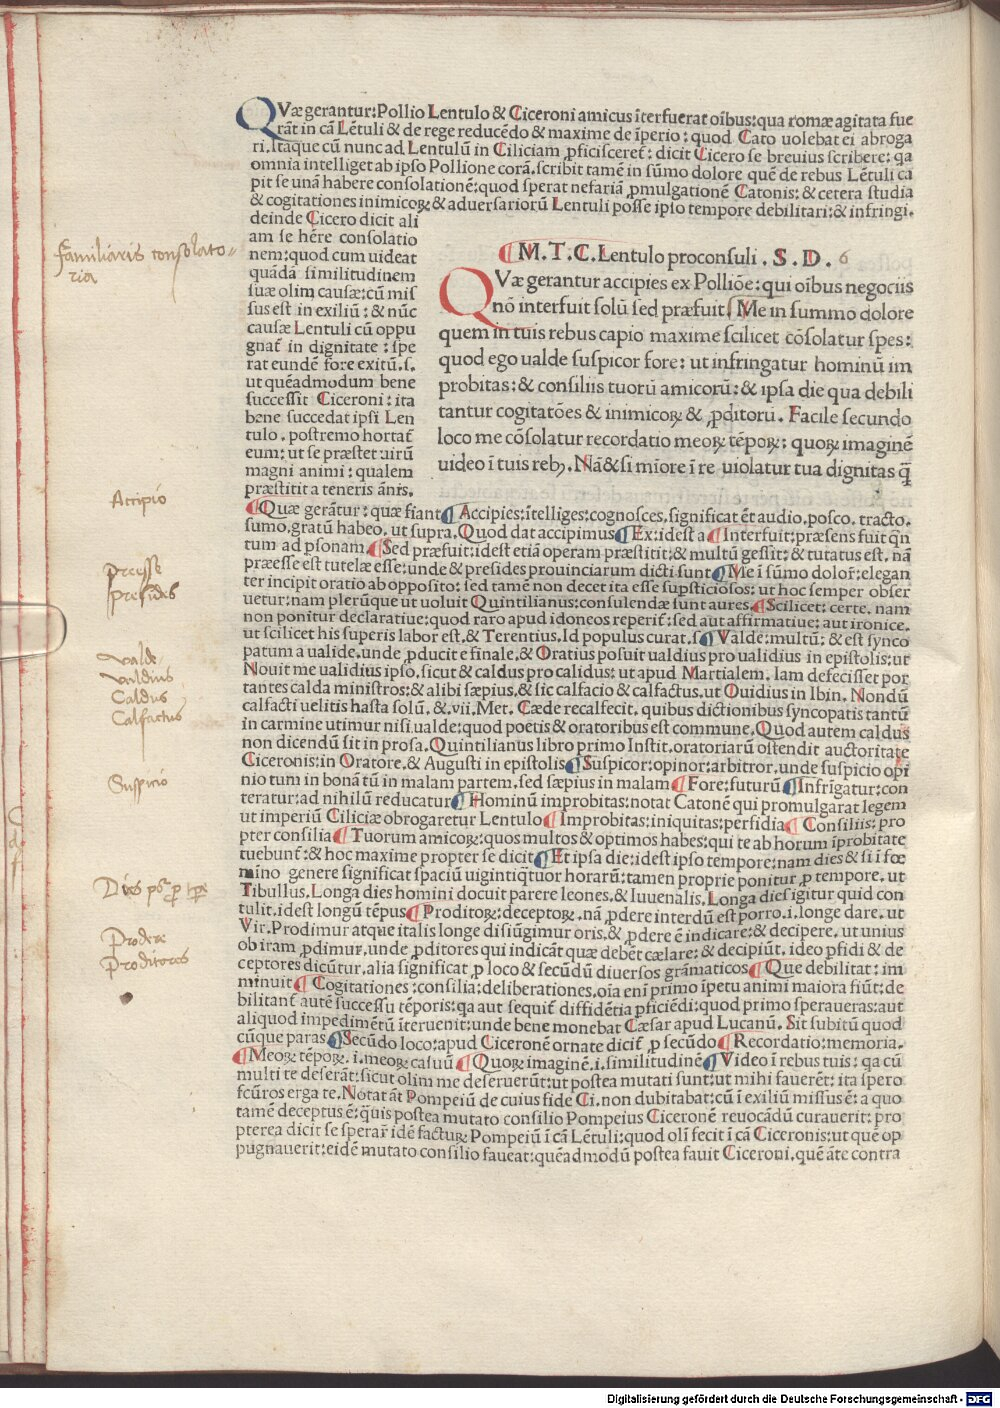 QVæ gerantur: Pollio Lentulo & Ciceroni amicus īterfuerat oībus: qua romæ agitata fue
rāt in cā Lētuli & de rege reducēdo & maxime de īperio: quod Cato uolebat ei abroga
ri. Itaque cū nunc ad Lentulū in Ciliciam ꝓficisceret̄: dicit Cicero se breuius scribere: qa
omnia intelliget ab ipso Pollione corā. scribit tamē in sūmo dolore quē de rebus Lētuli ca
pit se unā habere consolationē: quod sperat nefariā ꝓmulgationē Catonis: & cetera studia
& cogitationes inimicoꝝ & aduersariorū Lentuli posse ipso tempore debilitari: & infringi.
deinde Cicero dicit ali
am se hēre consolatio
nem: quod cum uideat
quādā similitudinem
suæ olim causæ: cū mis
sus est in exiliū: & nūc
causæ Lentuli cū oppu
gnat̄ in dignitate: spe
rat eundē fore exitū. s.
ut quēadmodum bene
successit Ciceroni: ita
bene succedat ipsi Len
tulo. postremo hortat̄
eum: ut se præstet uirū
magni animi: qualem
præstitit a teneris ānis.
M. T. C. Lentulo proconsuli. S. D. 6
QVæ gerantur accipies ex Polliōe: qui oībus negociis
nō interfuit solū sed præfuit. Me in summo dolore
quem in tuis rebus capio maxime scilicet cōsolatur spes:
quod ego ualde suspicor fore: ut infringatur hominū im
probitas: & consiliis tuorū amicorū: & ipsa die qua debili
tantur cogitatōes & inimicoꝝ & ꝓditorū. Facile secundo
loco me cōsolatur recordatio meoꝝ tēpoꝝ: quoꝝ imaginē
uideo ī tuis rebꝫ. Nā & si miore ī re uiolatur tua dignitas q̄
¶Quæ gerātur: quæ fiant ¶Accipies: ītelliges: cognosces. significat ēt audio. posco. tracto.
sumo. gratū habeo. ut supra. Quod dat accipimus ¶Ex: idest a ¶Interfuit: præsens fuit qn̄
tum ad psonam ¶Sed præfuit: idest etiā operam præstitit: & multū gessit: & tutatus est. nā
præesse est tutelæ esse: unde & presides prouinciarum dicti sunt ¶Me ī sūmo dolor̄: elegan
ter incipit oratio ab opposito: sed tamē non decet ita esse supsticiosos: ut hoc semper obser
uetur: nam plerūque ut uoluit Quintilianus: consulendæ sunt aures ¶Scilicet: certe. nam
non ponitur declaratiue: quod raro apud idoneos reperit̄: sed aut affirmatiue: aut ironice.
ut scilicet his superis labor est. & Terentius. Id populus curat. s. ¶Valde: multū: & est synco
patum a ualide. unde ꝓducit e finale. & Oratius posuit ualdius pro ualidius in epistolis: ut
Nouit me ualidius ipso. sicut & caldus pro calidus: ut apud Martialem. Iam defecisset por
tantes calda ministros: & alibi sæpius. & sic calfacio & calfactus. ut Ouidius in Ibin. Nondū
calfacti uelitis hasta solū. &. vii. Met. Cæde recalfecit. quibus dictionibus syncopatis tantū
in carmine utimur nisi ualde: quod poetis & oratoribus est commune. Quod autem caldus
non dicendū sit in prosa. Quintilianus libro primo Instit. oratoriarū ostendit auctoritate
Ciceronis: in Oratore. & Augusti in epistolis ¶Suspicor: opinor: arbitror. unde suspicio opi
nio tum in bonā tū in malam partem. sed sæpius in malam ¶Fore: futurū ¶Infrigatur: con
teratur: ad nihilū reducatur ¶Hominū improbitas: notat Catonē qui promulgarat legem
ut imperiū Ciliciæ obrogaretur Lentulo ¶Improbitas: iniquitas: perfidia ¶Consiliis: pro
pter consilia ¶Tuorum amicoꝝ: quos multos & optimos habes: qui te ab horum īprobitate
tuebunt̄: & hoc maxime propter se dicit ¶Et ipsa die: idest ipso tempore: nam dies & si ī fœ
mino genere significat spaciū uigintiq̄tuor horarū: tamen proprie ponitur ꝓ tempore. ut
Tibullus. Longa dies homini docuit parere leones. & Iuuenalis. Longa dies igitur quid con
tulit. idest longū tēpus ¶Proditoꝝ: deceptoꝝ. nā ꝓdere interdū est porro. i. longe dare. ut
Vir. Prodimur atque italis longe disiūgimur oris. & ꝓdere ē indicare: & decipere. ut unius
ob iram ꝓdimur. unde ꝓditores qui indicāt quæ debēt cælare: & decipiūt. ideo pfidi & de
ceptores dicūtur. alia significat ꝓ loco & secūdū diuersos grāmaticos ¶Que debilitat: im
minuit ¶Cogitationes: consilia: deliberationes. oīa enī primo īpetu animi maiora fiūt: de
bilitant̄ autē successu tēporis: qa aut sequit̄ diffidētia pficiēdi: quod primo speraueras: aut
aliquod impedimētū īteruenit: unde bene monebat Cæsar apud Lucanū. Sit subitū quod
cūque paras ¶Secūdo loco: apud Ciceronē ornate dicit̄ ꝓ secūdo ¶Recordatio: memoria.
¶Meoꝝ tēpoꝝ. i. meoꝝ casuū ¶Quoꝝ imaginē. i. similitudinē ¶Video ī rebus tuis: qa cū
multi te deserāt: sicut olim me deseruerūt: ut postea mutati sunt: ut mihi fauerēt: ita spero
fcūros erga te. Notat āt Pompeiū de cuius fide Ci. non dubitabat: cū ī exiliū missus ē: a quo
tamē deceptus ē: q̄uis postea mutato consilio Pompeius Ciceronē reuocādū curauerit: pro
pterea dicit se sperar̄ idē factuꝝ Pompeiū ī cā Lētuli: quod olī fecit ī cā Ciceronis: ut quē op
pugnauerit: eidē mutato consilio faueat: quēadmodū postea fauit Ciceroni. quē āte contra
Familiaris consolato=
ria
Accipio
Preesse
presides
valde
validius
Caldus
Calfactus
Suspitio
Prodere
Proditores
Digitalisierung gefördert durch die Deutsche Forschungsgemeinschaft - DFG